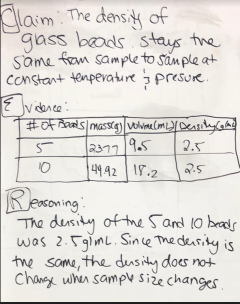 Claim: The density of
glass beads stays the
same from sample to sample at
constant temperature & presure.
Evidence:
# of Beads mass(g) volume(mL) Density(g/mL)
5 23.77 9.5 2.5
10 49.92 18.2 2.5
Reasoning:
The density of the 5 and 10 beads
was 2.5g/mL. Since the density is
the same, the density does not
change when sample size changes.